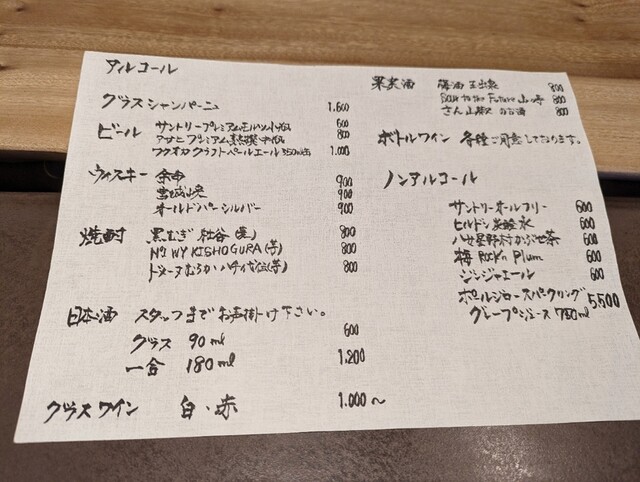 アルコール
グラスシャンパーニュ 1,600
ビール サントリープレミアムモルツ小瓶 600
アサヒプレミアム熟撰中瓶 800
フクオカクラフトペールエール350ml缶 1,000
ウィスキー 余市 900
宮城峡 900
オールドパーシルバー 900
焼酎 黒むぎ 800
No.1 WY KISHOGURA(芋) 800
(芋) 800
日本酒 スタッフまでお声掛け下さい。
グラス 90ml 600
一合 180ml 1,200
グラスワイン 白・赤 1.000〜
果実酒 梅酒 800
Back to the Future 800
800
ボトルワイン 各種ご用意しております。
ノンアルコール
サントリーオールフリー 600
ヒルドン炭酸水 600
八女星野村かぶせ茶 600
梅 Rock'n Plum 600
ジンジャエール 600
ポールジロースパークリング 5,500
グレープジュース 750ml